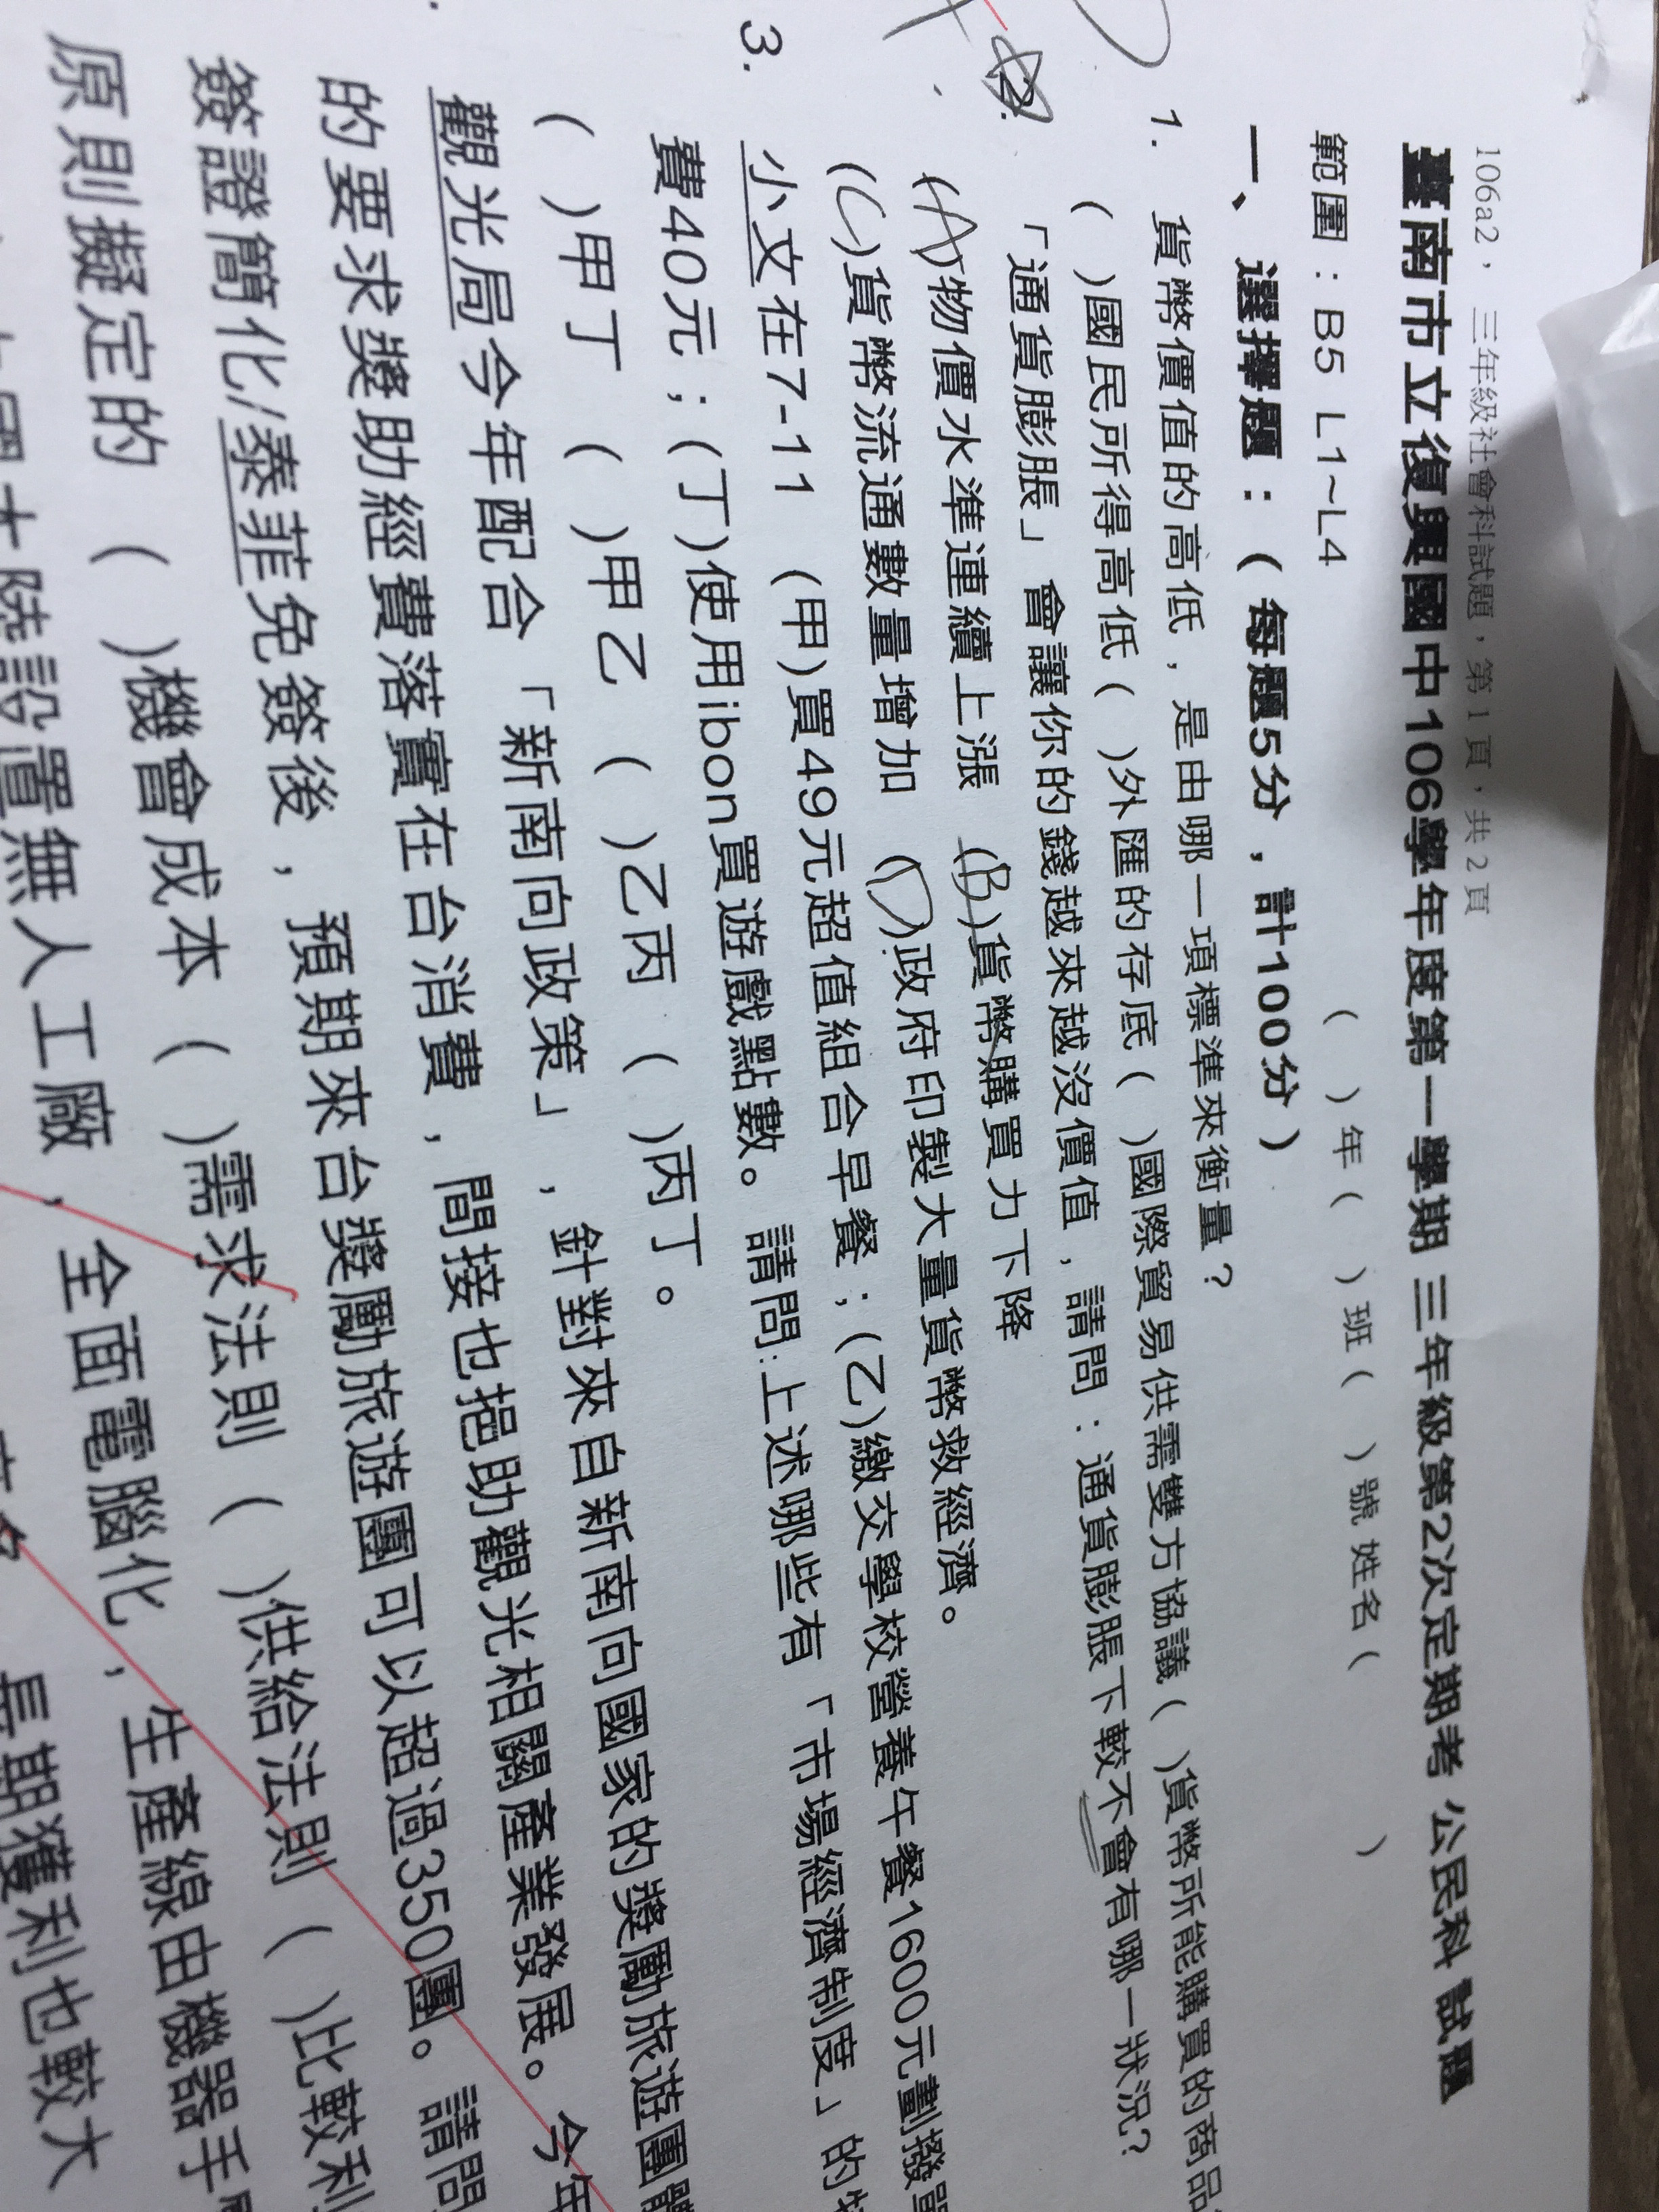 106a2，三年級社會科試題，第1頁，共2頁
臺南市立復興國中106學年度第一學期 三年級第2次定期考 公民科 試題
範圍：B5 L1~L4 (　)年(　)班(　)號 姓名(　)
一、選擇題：(每題5分，計100分)
1. 貨幣價值的高低，是由哪一項標準來衡量？
(　)國民所得高低(　)外匯的存底(　)國際貿易供需雙方協議(　)貨幣所能購買的商品
2. 「通貨膨脹」會讓你的錢越來越沒價值，請問：通貨膨脹下較不會有哪一狀況?
(A)物價水準連續上漲 (B)貨幣購買力下降
(C)貨幣流通數量增加 (D)政府印製大量貨幣救經濟。
3. 小文在7-11 (甲)買49元超值組合早餐；(乙)繳交學校營養午餐1600元劃撥單
費40元；(丁)使用ibon買遊戲點數。請問:上述哪些有「市場經濟制度」的特
(　)甲丁 (　)甲乙 (　)乙丙 (　)丙丁。
觀光局今年配合「新南向政策」，針對來自新南向國家的獎勵旅遊團體
的要求獎助經費落實在台消費，間接也挹助觀光相關產業發展。今年
簽證簡化/泰菲免簽後，預期來台獎勵旅遊團可以超過350團。請問
原則擬定的 (　)機會成本 (　)需求法則 (　)供給法則 (　)比較利
大陸設置無人工廠，全面電腦化，生產線由機器手
長期獲利也較大